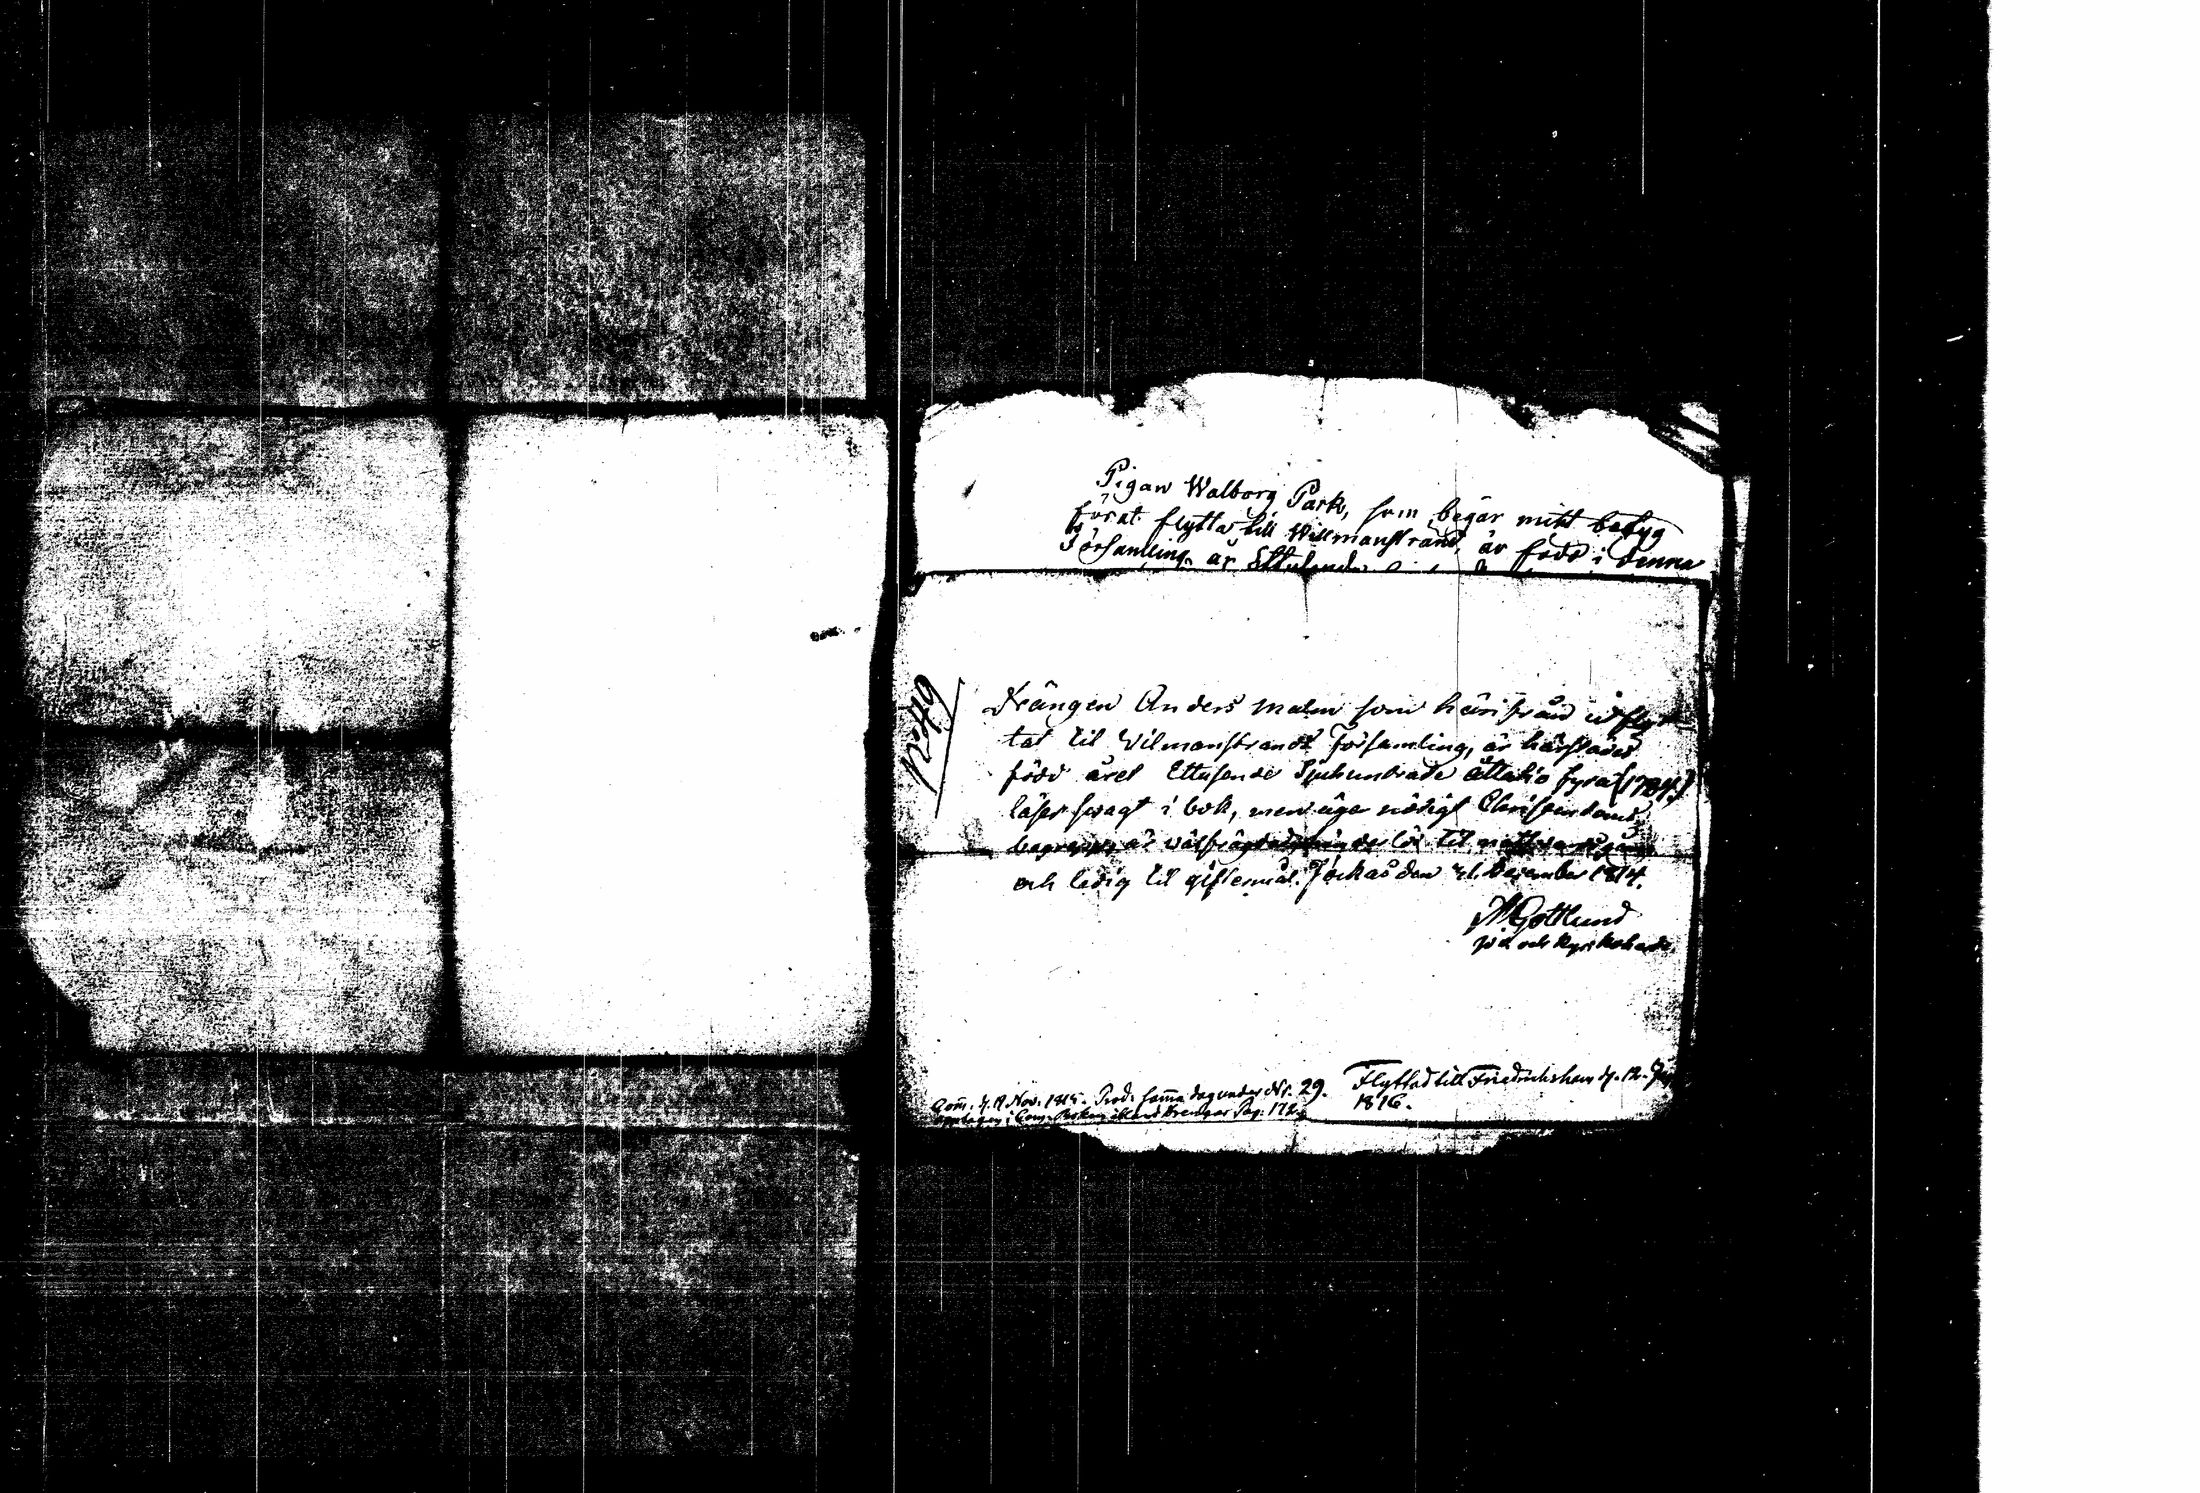 Pigan Walborg Park, som begär mitt betyg
för at flytta till Willmanstrand, är född i denna
Församling år Ettusende
Drängen Anders Malm som härifrån utflyt-
tat til Wilmanstrands Församling, är härstädes
född året Ettusende Sjuhundrade åttatio fyra (1784.)
läser swagt i bok, men äga nödigt Christendoms
begrepp, är wälfrägdad, til nattwardsgång
och ledig til giftermål. Jockas den 31. December 1814.
M Gottlund
vid och Kyrkoherde.
Com. d. 19 Nov. 1815. Prod. samma dag under No. 29.
Pag. 172.
Flyttad till Friedrichsham d. 12.
1816.